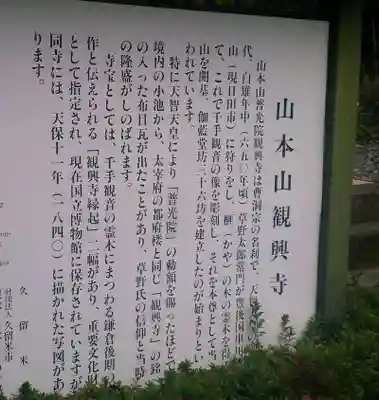 山本山観興寺
山本山普光院観興寺は曹洞宗の名刹で、天
代、白雉年中(六五〇年頃)草野太郎常門が豊後国串川
山(現日田市)に狩りをし、榧(かや)の木の霊木を得
て、これで千手観音の像を彫刻し、それを本尊として当
山を開基、伽藍堂坊三十六坊を建立したのが始まりとい
われています。
特に天智天皇により「普光院」の勅額を賜ったほどで
境内の小池から、太宰府の都府楼と同じ「観興寺」の銘
の入った布目瓦が出たことがあり、草野氏の信仰と当時
の隆盛がしのばれます。
寺宝としては、千手観音の霊木にまつわる鎌倉後期の
作と伝えられる「観興寺縁起」二幅があり、重要文化財
として指定され、現在国立博物館に保存されていますが
同寺には、天保十一年(一八四〇)に描かれた写図があ
ります。
久留米
社団法人 久留米市